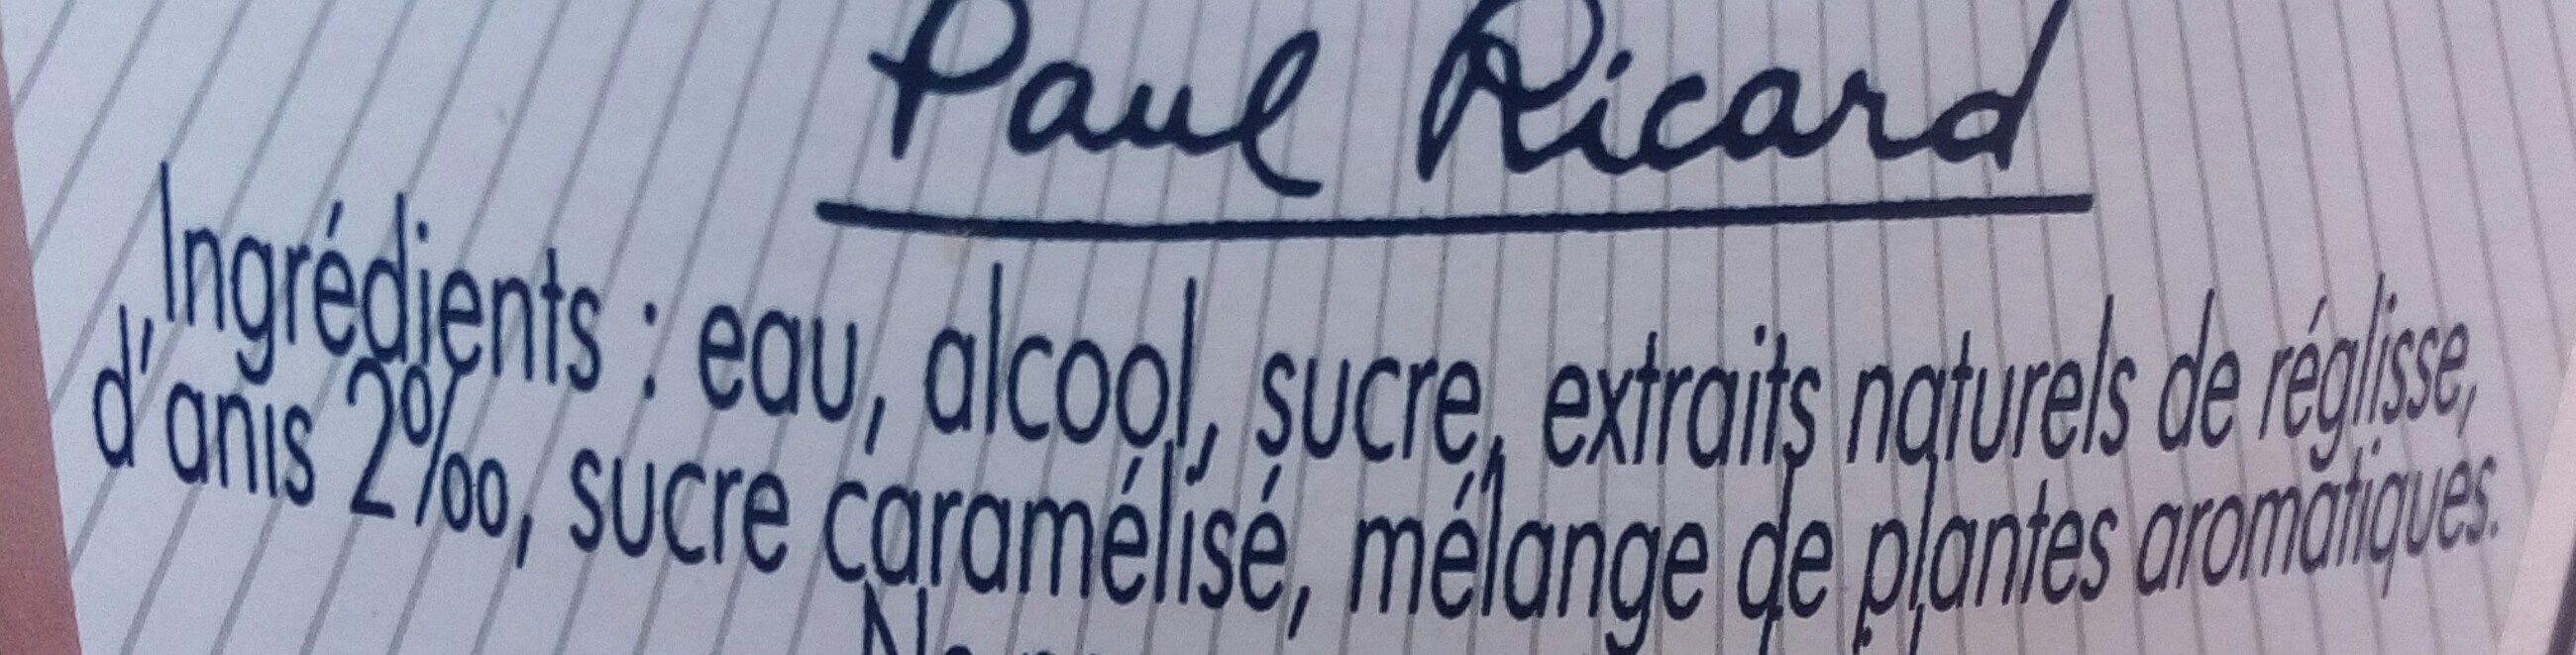 Paul Ricard
Ingrédients : eau, alcool, sucre, extraits naturels de réglisse,
d'anis 2‰, sucre caramélisé, mélange de plantes aromatiques.